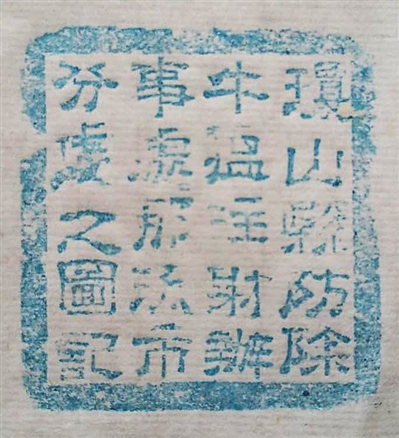 瓊山縣防除
牛瘟注射辦
事處那流市
分處之圖記